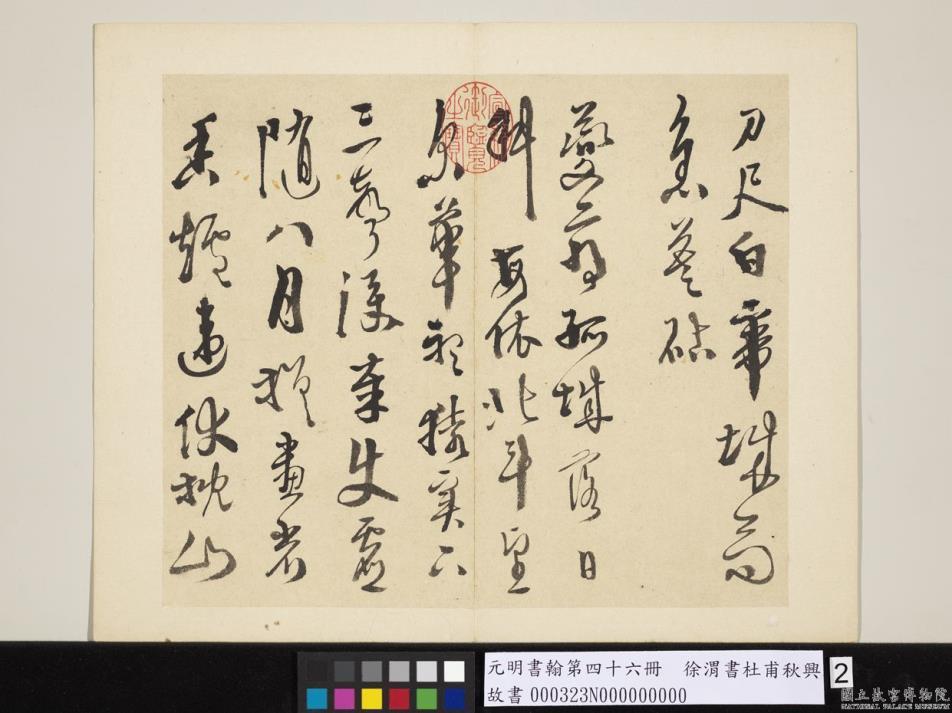 刀尺白帝城高
急暮砧
夔府孤城落日
斜每依北斗望
京華聽猿實下
三聲淚奉使虛
隨八月槎畫省
香爐違伏枕山
宣統御覽之寶
元明書翰第四十六冊 徐渭書杜甫秋興
故書 000323N000000000
2
國立故宮博物院
NATIONAL PALACE MUSEUM